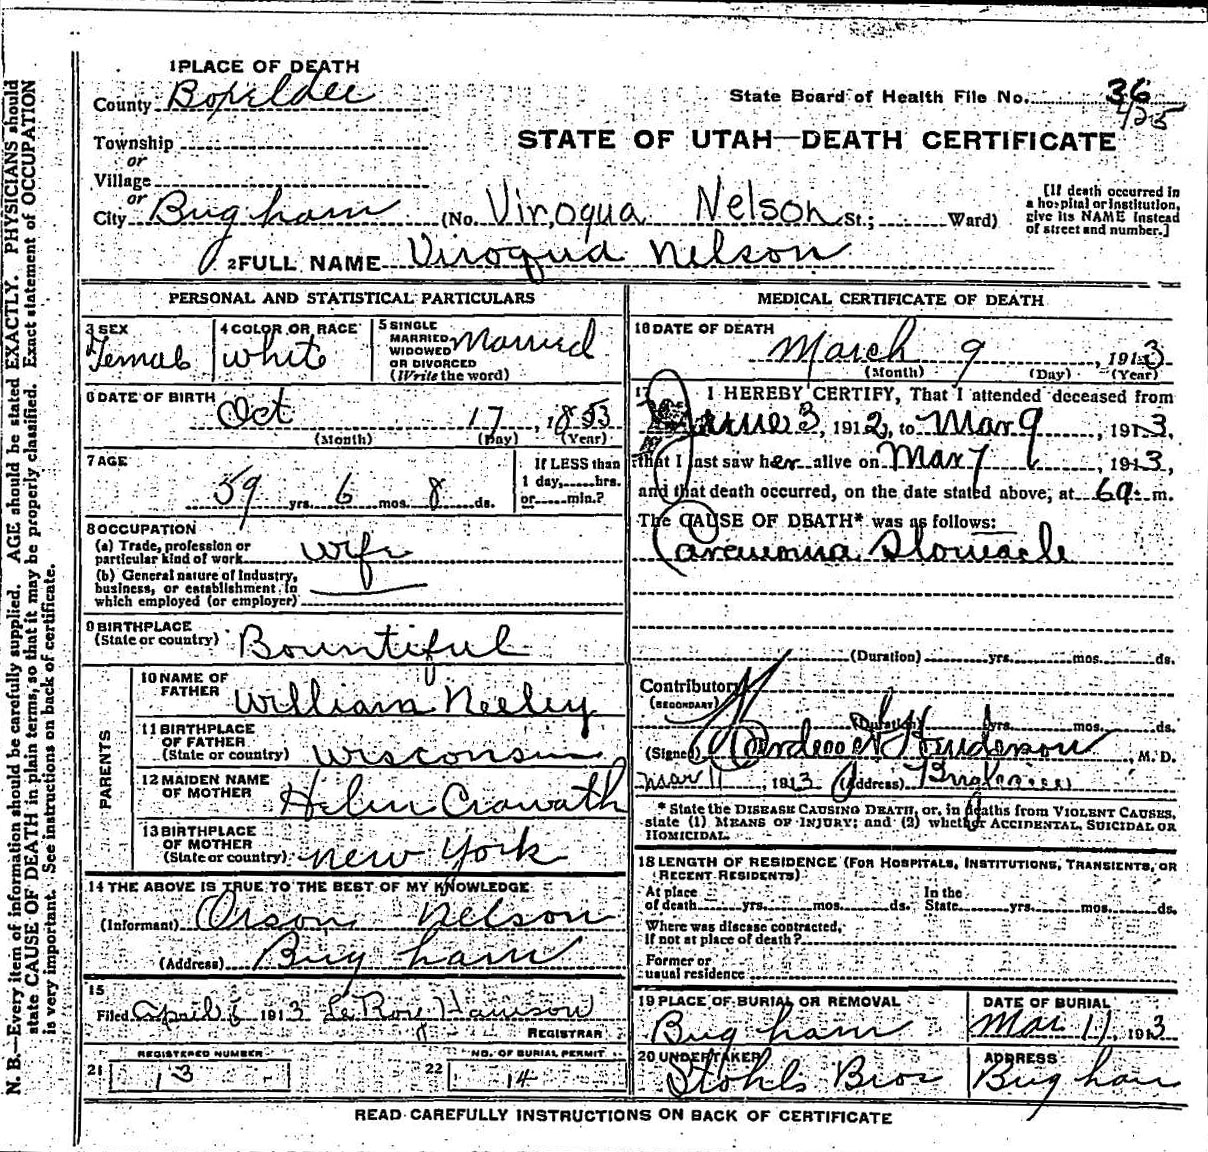 1 PLACE OF DEATH
County Boxeldee
State Board of Health File No. 36
425
Township
or
Village
or
City Brigham (No. Viroqua Nelson St.; Ward)
STATE OF UTAH—DEATH CERTIFICATE
[If death occurred in a hospital or institution, give its NAME instead of street and number.]
2 FULL NAME Viroqua Nelson
PERSONAL AND STATISTICAL PARTICULARS
3 SEX Female
4 COLOR OR RACE White
5 SINGLE MARRIED WIDOWED OR DIVORCED (Write the word) Married
6 DATE OF BIRTH Oct 17, 1853
(Month) (Day) (Year)
7 AGE 59 yrs. 6 mos. 8 ds.
If LESS than 1 day,.....hrs. or.....min.?
8 OCCUPATION
(a) Trade, profession or particular kind of work wife
(b) General nature of Industry, business, or establishment in which employed (or employer)
9 BIRTHPLACE (State or country) Bountiful
PARENTS
10 NAME OF FATHER William Neeley
11 BIRTHPLACE OF FATHER (State or country) Wisconsin
12 MAIDEN NAME OF MOTHER Helen Crawath
13 BIRTHPLACE OF MOTHER (State or country) New York
14 THE ABOVE IS TRUE TO THE BEST OF MY KNOWLEDGE
(Informant) Orson Nelson
(Address) Brigham
15
Filed April 6 1913 LeRoie Harrison
REGISTRAR
21 REGISTERED NUMBER 13
22 NO. OF BURIAL PERMIT 14
MEDICAL CERTIFICATE OF DEATH
16 DATE OF DEATH March 9, 1913
(Month) (Day) (Year)
17 I HEREBY CERTIFY, That I attended deceased from
June 3, 1912, to Mar 9, 1913,
that I last saw her alive on Mar 7, 1913,
and that death occurred, on the date stated above, at 6 a. m.
The CAUSE OF DEATH* was as follows:
Carcinoma Stomach
(Duration) yrs. mos. ds.
Contributory (SECONDARY)
(Duration) yrs. mos. ds.
(Signed) Henderson, M. D.
Mar 11, 1913 (Address)
* State the DISEASE CAUSING DEATH, or, in deaths from VIOLENT CAUSES, state (1) MEANS OF INJURY; and (2) whether ACCIDENTAL, SUICIDAL OR HOMICIDAL.
18 LENGTH OF RESIDENCE (FOR HOSPITALS, INSTITUTIONS, TRANSIENTS, OR RECENT RESIDENTS)
At place of death yrs. mos. ds. In the State yrs. mos. ds.
Where was disease contracted, If not at place of death?
Former or usual residence
19 PLACE OF BURIAL OR REMOVAL Brigham
DATE OF BURIAL Mar 11 1913
20 UNDERTAKER Stohls Bros
ADDRESS Brigham
READ CAREFULLY INSTRUCTIONS ON BACK OF CERTIFICATE
N. B.—Every item of information should be carefully supplied. AGE should be stated EXACTLY. PHYSICIANS should
state CAUSE OF DEATH in plain terms, so that it may be properly classified. Exact statement of OCCUPATION
is very important. See instructions on back of certificate.